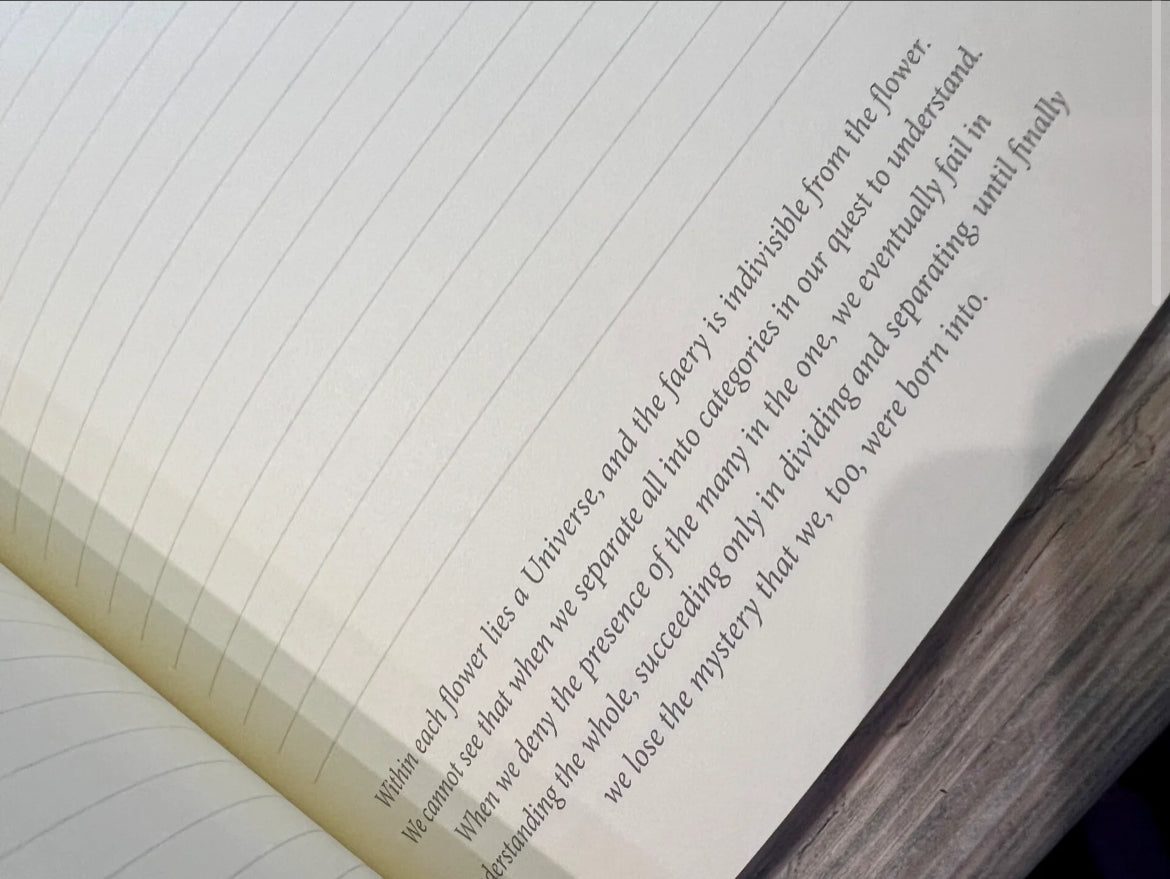 Within each flower lies a Universe, and the faery is indivisible from the flower.
We cannot see that when we separate all into categories in our quest to understand.
When we deny the presence of the many in the one, we eventually fail in
derstanding the whole, succeeding only in dividing and separating, until finally
we lose the mystery that we, too, were born into.